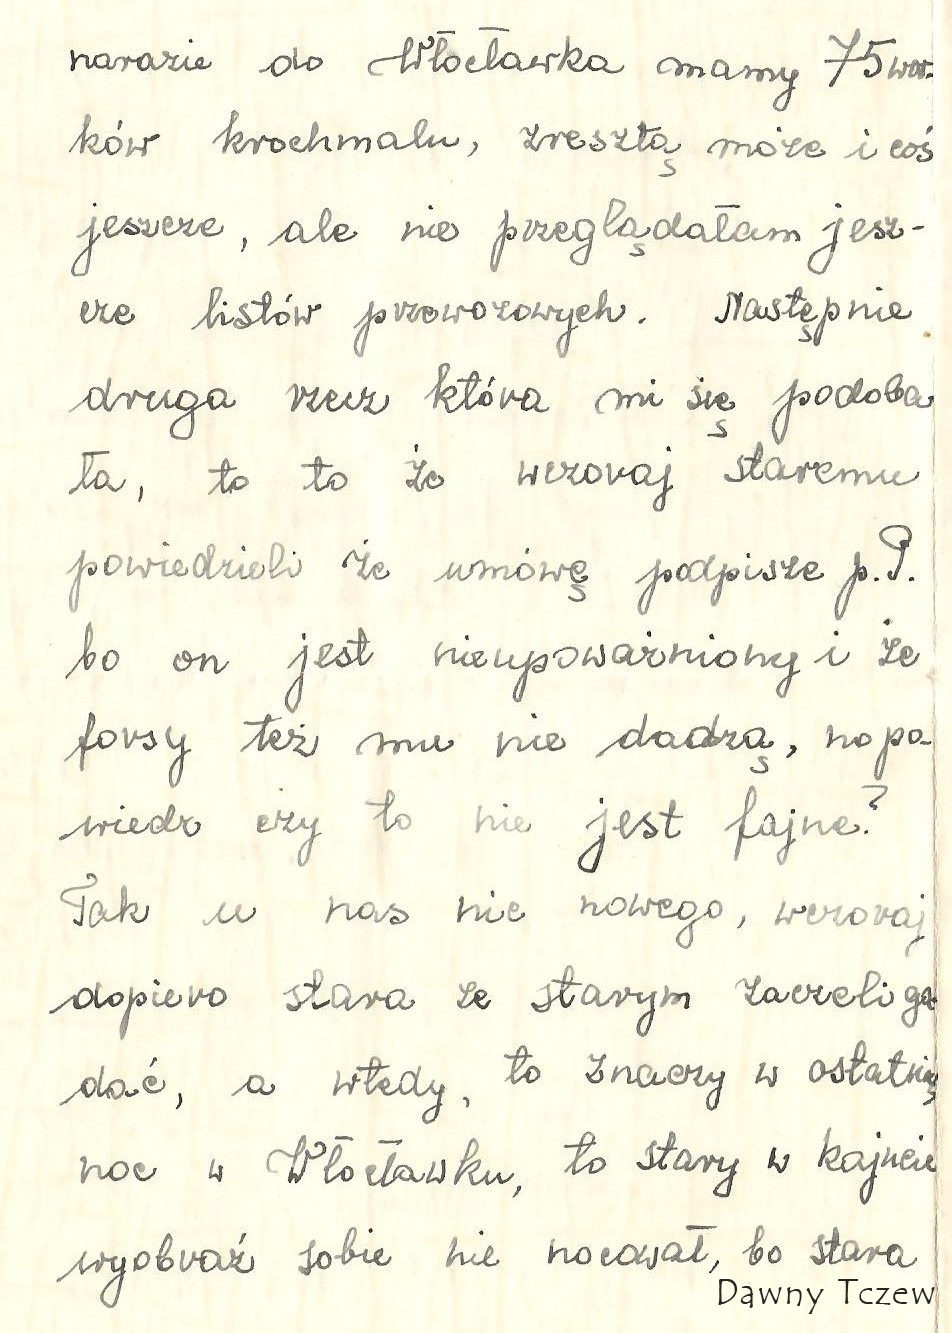 narazie do Włocławka mamy 75 wor-
ków krochmalu, zresztą może i coś
jeszcze, ale nie przeglądałam jesz-
cze listów przewozowych. Następnie
druga rzecz która mi się podoba
ła, to to że wczoraj staremu
powiedzieli że umówę podpisze p. P.
bo on jest nieupoważniony i że
forsy też mu nie dadzą, no po-
wiedz czy to nie jest fajne?
Tak u nas nic nowego, wczoraj
dopiero stara ze starym zaczeli ga-
dać, a wtedy, to znaczy w ostatnią
noc w Włocławku, to stary w kajucie
wyobraź sobie nie nocował, bo stara
Dawny Tczew